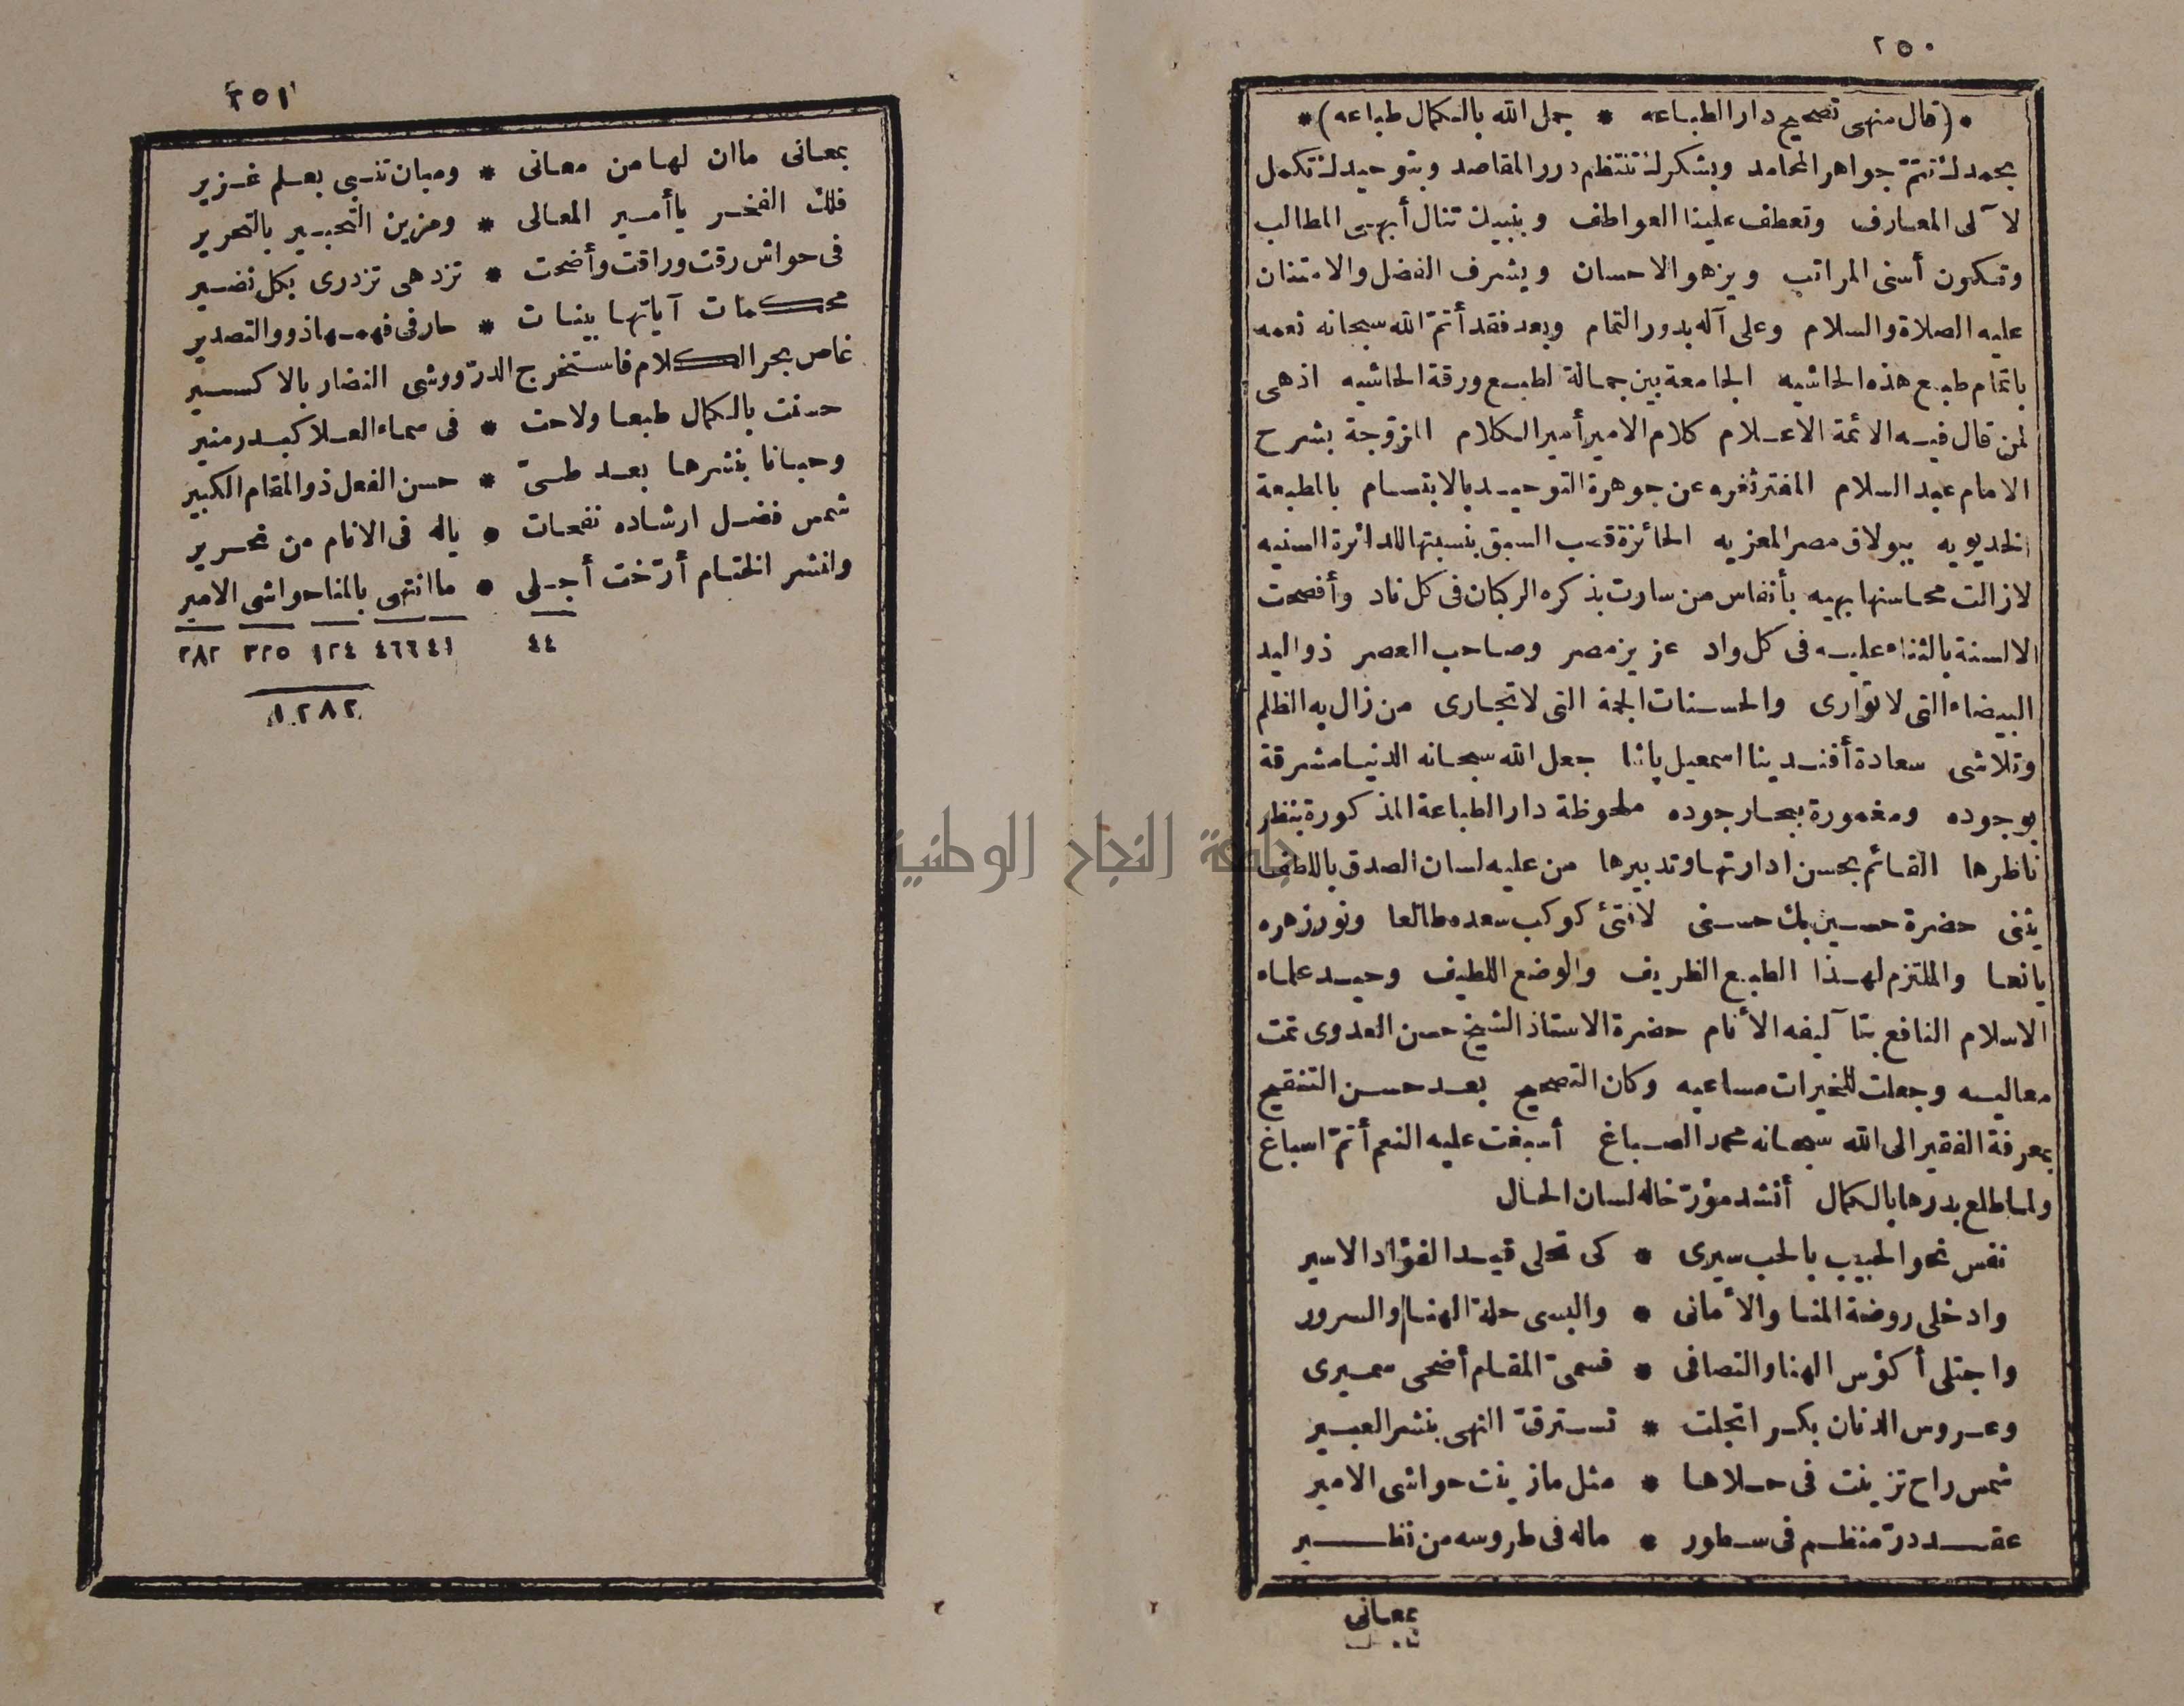 ٢٥٠
*(قال منهى تصحيح دار الطباعه * جمل الله بالكمال طباعه)*
بحمدك تتم جواهر المحامد وبشكرك تنتظم درر المقاصد وبتوحيدك تكمل
لآلى المعارف وتعطف علينا العواطف وبنبيك تنال أبهى المطالب
وتكون أسنى المراتب ويزهو الاحسان ويشرف الفضل والامتنان
عليه الصلاة والسلام وعلى آله بدور التمام وبعد فقد أتم الله سبحانه نعمه
باتمام طبع هذه الحاشيه الجامعة بين جمالة الطبع ورقة الحاشيه اذهى
لمن قال فيه الائمة الاعلام كلام الامير أمير الكلام المزوجة بشرح
الامام عبد السلام المفتر ثغره عن جوهرة التوحيد بالابتسام بالمطبعة
الخديويه ببولاق مصر المعزيه الحائزة قصب السبق بنسبتها للدائرة السنيه
لازالت محاسنها بهيه بأنفاس من سارت بذكره الركبان فى كل ناد وأفصحت
الالسنة بالثناء عليه فى كل واد عزيز مصر وصاحب العصر ذو اليد
البيضاء التى لا توارى والحسنات الجمة التى لا تجارى من زال به الظلم
وتلاشى سعادة أفندينا اسمعيل باشا جعل الله سبحانه الدنيا مشرقة
بوجوده ومغمورة ببحار جوده ملحوظة دار الطباعة المذكورة بنظر
ناظرها القائم بحسن ادارتها وتدبيرها من عليه لسان الصدق باللطف
يثنى حضرة حسين بك حسنى لافتئ كوكب سعده طالعا ونور زهره
يانعا والملتزم لهذا الطبع الظريف والوضع اللطيف وحيد علماء
الاسلام النافع بتآليفه الأنام حضرة الاستاذ الشيخ حسن العدوى تمت
معاليه وجعلت للخيرات مساعيه وكان التصحيح بعد حسن التنقيح
بمعرفة الفقير الى الله سبحانه محمد الصباغ أسبغت عليه النعم أتم اسباغ
ولما طلع بدرها بالكمال أنشد مؤرخا له لسان الحال
نفس نحو الحبيب بالحب سيرى * كى تحلى قيد الفؤاد الاسير
وادخلى روضة المنا والأمانى * والبسى حلة الهنا والسرور
واجتلى أكؤس الهنا والتصافى * فسمى المقام أضحى سميرى
وعروس الدنان بكر اتجلت * تسترق النهى بنشر العبير
شمس راح تزينت فى حلاها * مثل ما زينت حواشى الامير
عقد در منظم فى سطور * ماله فى طروسه من نظير
بمعانى
٢٥١
بمعانى ما ان لها من معانى * ومبان تنبى بعلم غزير
فلك الفخر يا أمير المعالى * ومزين التحبير بالتحرير
فى حواش رقت وراقت وأضحت * تزدهى تزدرى بكل نضير
محكمات آياتها بينات * حار فى فهمها ذوو التصدير
غاص بحر الكلام فاستخرج الدر ووشى النضار بالاكسير
حسنت بالكمال طبعا ولاحت * فى سماء العلا كبدر منير
وحبانا بنشرها بعد طى * حسن الفعل ذو المقام الكبير
شمس فضل ارشاده نفحات * ياله فى الانام من نحرير
وانشر الختام أرخت أجلى * ما انتهى بالمنا حواشى الامير
٤٤ ٤١ ٤٦٦ ١٢٤ ٣٢٥ ٢٨٢
١٢٨٢
جامعة النجاح الوطنية